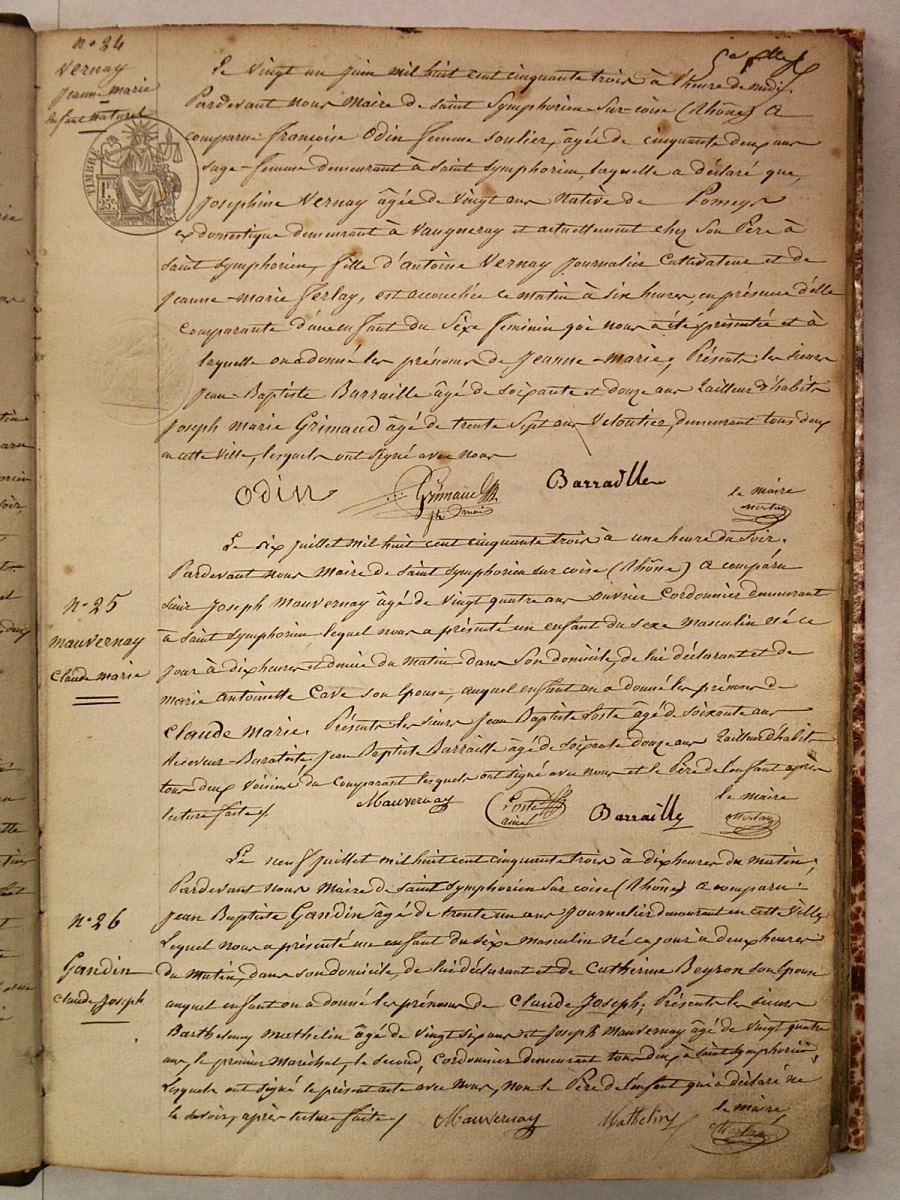 n° 24
Vernay
Jeanne-Marie
Enfant Naturel
TIMBRE
Le vingt un Juin mil huit cent cinquante trois à l'heure de midi,
Pardevant nous Maire de Saint Symphorien Sur-coise (Rhône) a
comparu françoise Odin femme Soulier, âgée de cinquante deux ans
sage-femme demeurant à Saint Symphorien, laquelle a déclaré que,
Josephine Vernay âgée de vingt ans native de Pomeys
ex domestique demeurant à Vaugneray et actuellement chez son Père à
Saint Symphorien, fille d'antoine Vernay Journalier Cultivateur et de
Jeanne-marie Ferlay, est accouchée ce matin à six heures, en présence d'elle
comparante d'une enfant du Sexe féminin qui nous a été présentée et à
laquelle on a donné les prénoms de Jeanne-Marie; Présents les sieurs
Jean-Baptiste Barraille âgé de soixante et douze ans Tailleur d'habits
Joseph Marie Grimaud âgé de trente Sept ans Veloutier, demeurant tous deux
en cette ville, lesquels ont signé avec nous
Odin Grimaud Barraille le maire
n° 25
Mauvernay
Claude Marie
Le six Juillet mil huit cent cinquante trois à une heure du Soir,
Pardevant nous Maire de Saint Symphorien sur coise (Rhône) a comparu
Sieur Joseph Mauvernay âgé de vingt quatre ans ouvrier Cordonnier demeurant
à Saint Symphorien, lequel nous a présenté un enfant du sexe masculin né ce
jour à dix heures et demie du matin dans son domicile, de lui déclarant et de
Marie Antoinette Cave son Epouse, auquel enfant on a donné les prénoms de
Claude Marie. Présents les sieurs Jean Baptiste Poste âgé de soixante ans
Receveur Buraliste, Jean Baptiste Barraille âgé de soixante douze ans Tailleur d'habits
tous deux voisins du comparant lesquels ont signé avec nous et le Père de l'enfant après
lecture faite.
Mauvernay Poste ainé Barraille le maire
n° 26
Gandin
Claude Joseph
Le neuf Juillet mil huit cent cinquante trois à dix heures du matin,
Pardevant nous Maire de Saint Symphorien Sur coise (Rhône) a comparu
Jean Baptiste Gandin âgé de trente un ans Journalier demeurant en cette Ville
Lequel nous a présenté un enfant du sexe masculin né ce jour à deux heures
du matin, dans son domicile, de lui déclarant et de Catherine Beyron son Epouse
auquel enfant on a donné les prénoms de Claude Joseph; Présents les sieurs
Barthelemy Mathelin âgé de vingt six ans et Joseph Mauvernay âgé de vingt quatre
ans, le premier Maréchal, le second, Cordonnier demeurant tous deux à Saint Symphorien,
Lesquels ont signé le présent acte avec nous, non le Père de l'enfant qui a déclaré ne
le savoir, après lecture faite
Mauvernay Mathelin le maire